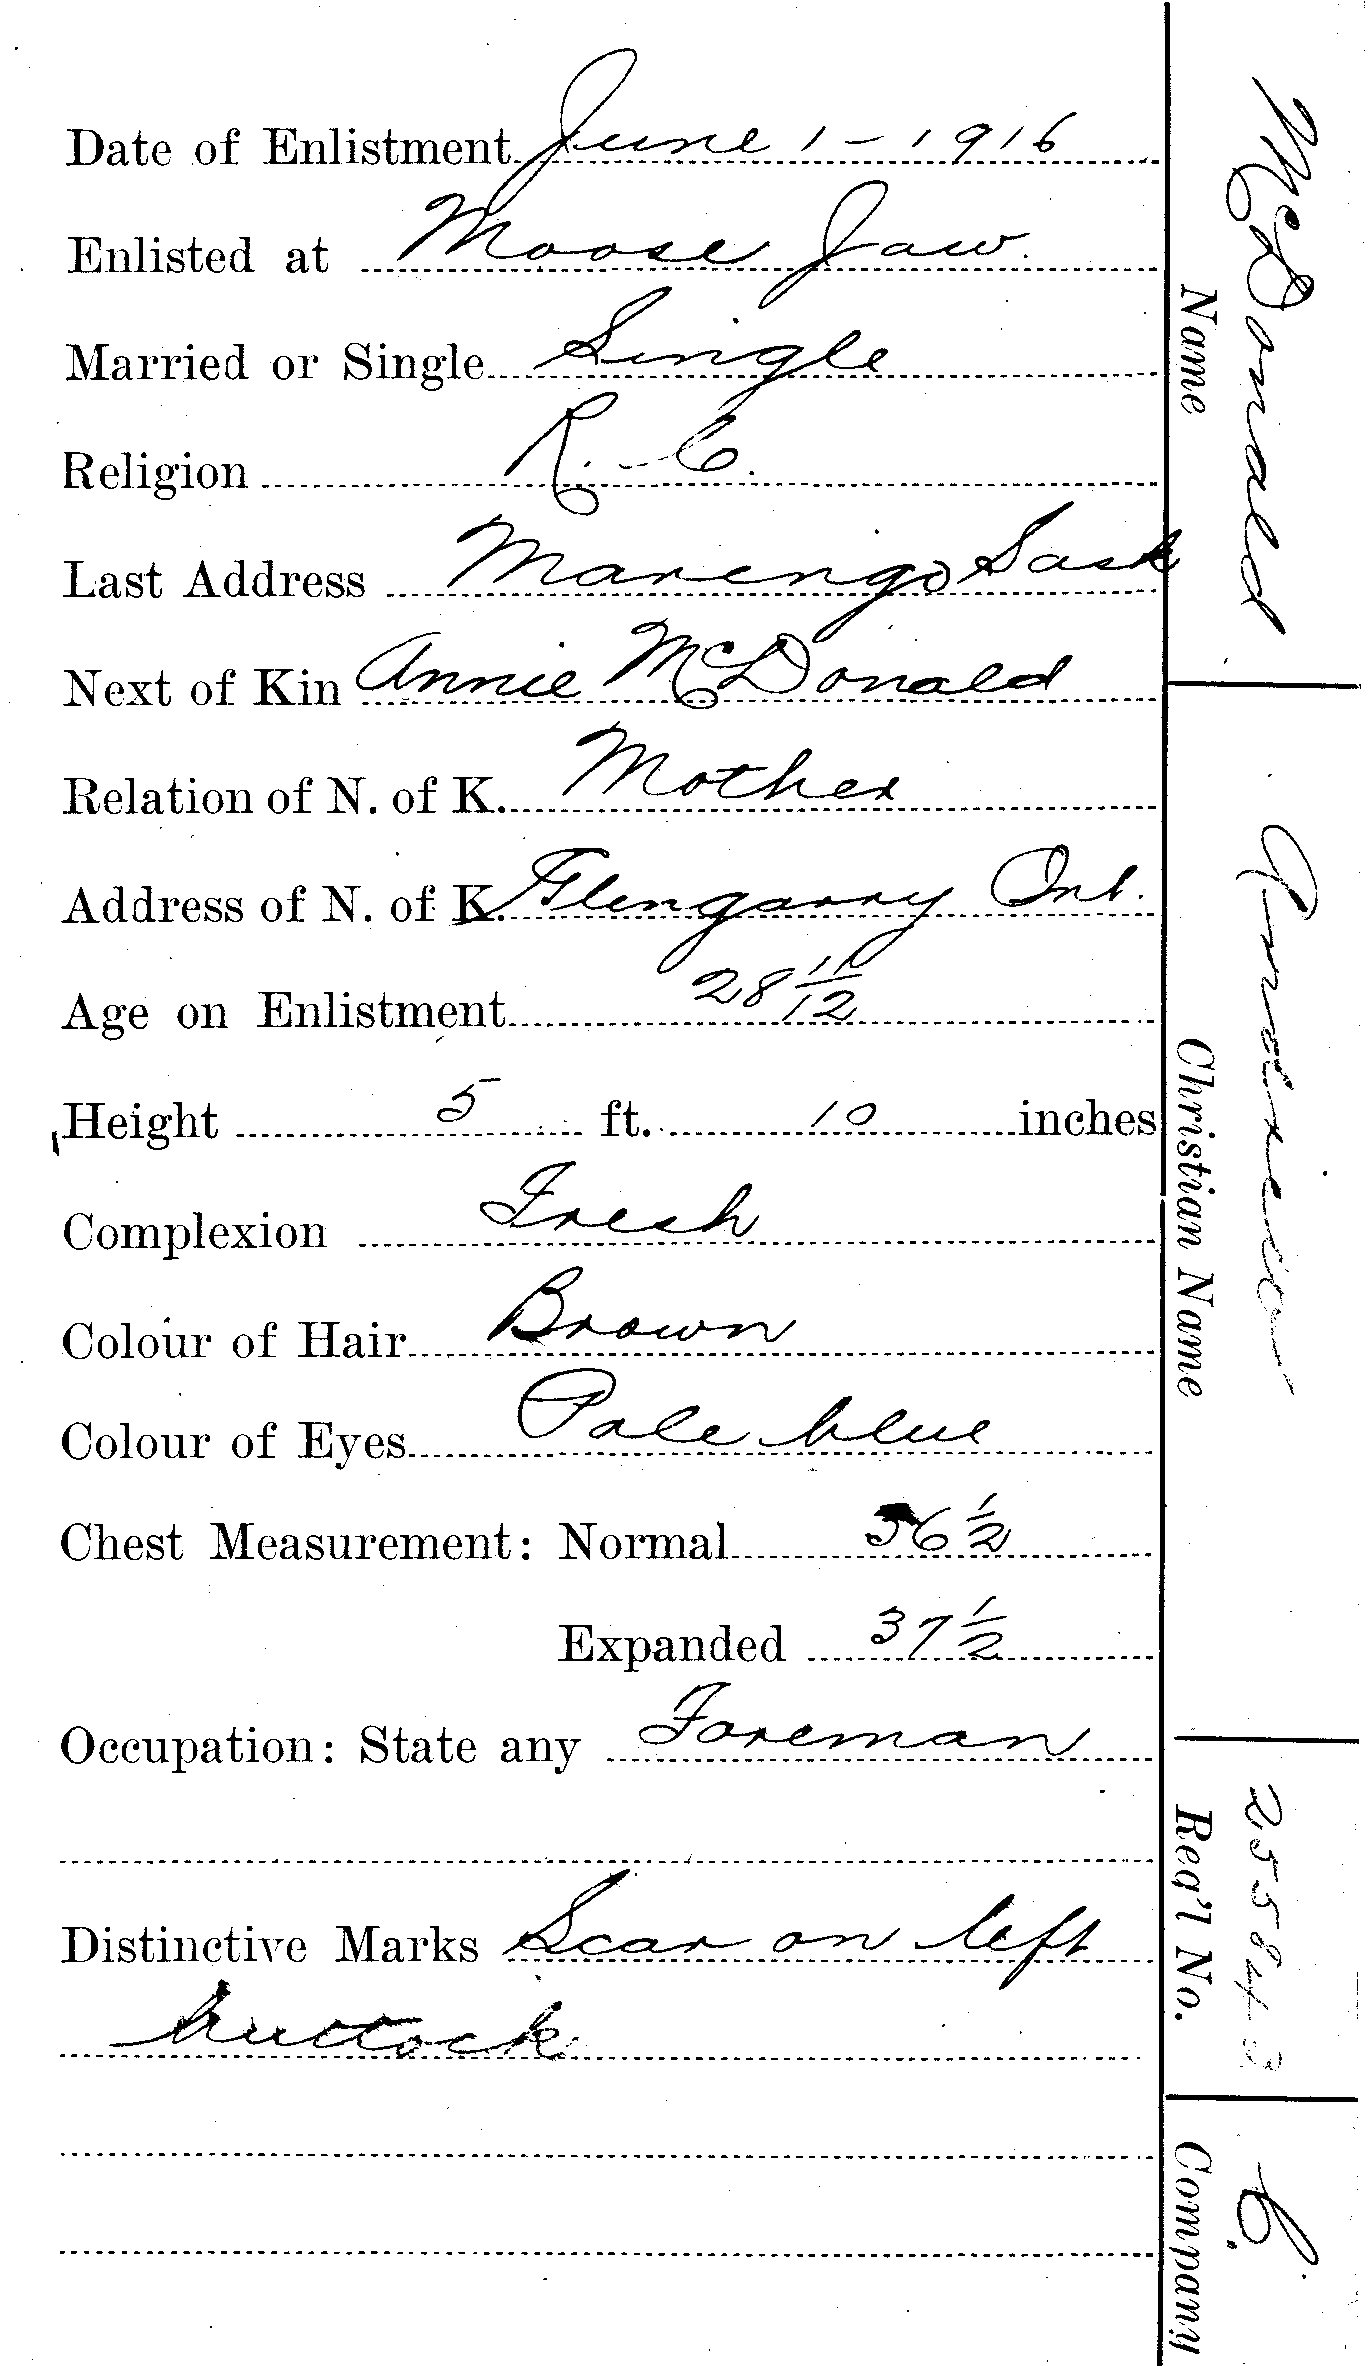 Date of Enlistment June 1 - 1916
Enlisted at Moose Jaw.
Married or Single Single
Religion R. C.
Last Address Marengo Sask
Next of Kin Annie McDonald
Relation of N. of K. Mother
Address of N. of K. Glengarry Ont.
Age on Enlistment 28 11/12
Height 5 ft. 10 inches
Complexion Fresh
Colour of Hair Brown
Colour of Eyes Pale blue
Chest Measurement: Normal 36 1/2
Expanded 37 1/2
Occupation: State any Foreman
Distinctive Marks Scar on left
buttock
Name McDonald
Christian Name Andrew
Reg'l No. 255843
Company C.